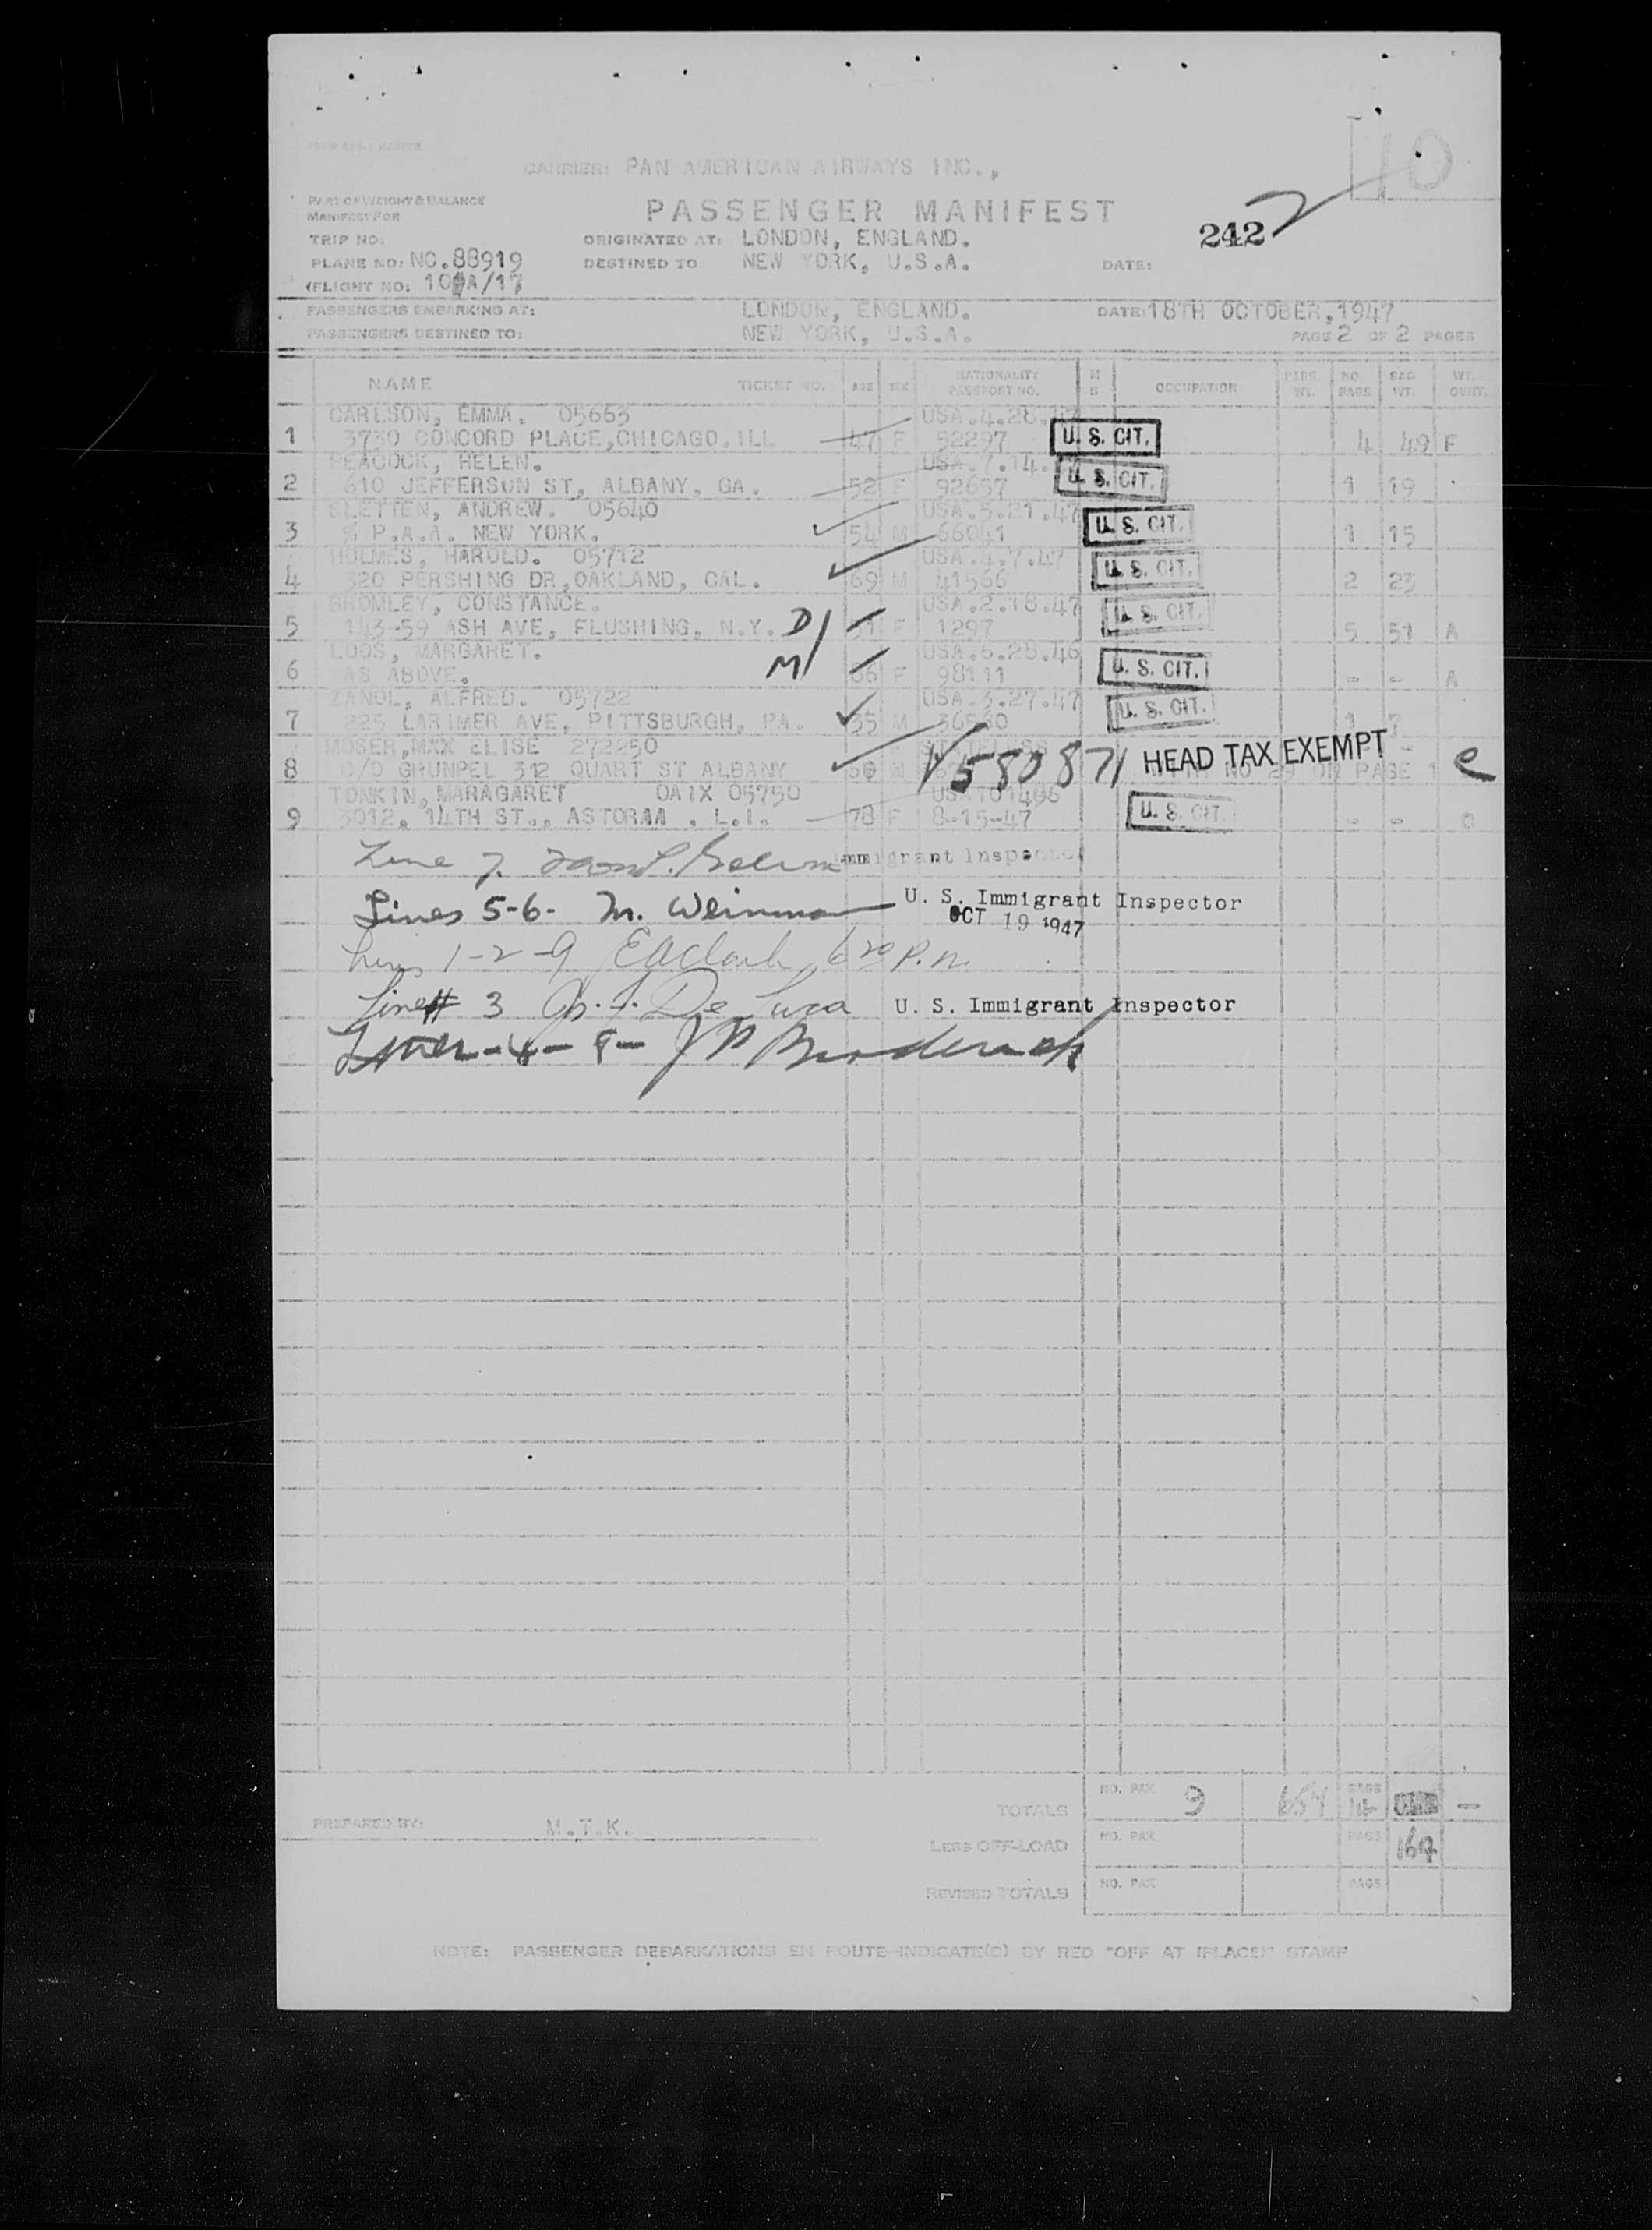 10
CARRIER: PAN AMERICAN AIRWAYS INC.,
PART OF WEIGHT & BALANCE
MANIFEST FOR
PASSENGER MANIFEST
242
TRIP NO:
ORIGINATED AT: LONDON, ENGLAND.
PLANE NO: NC.88919
DESTINED TO NEW YORK, U.S.A.
DATE:
(FLIGHT NO: 101A/17
PASSENGERS EMBARKING AT: LONDON, ENGLAND. DATE: 18TH OCTOBER, 1947
PASSENGERS DESTINED TO: NEW YORK, U.S.A. PAGE 2 OF 2 PAGES
NAME TICKET NO. AGE SEX NATIONALITY PASSPORT NO. M S OCCUPATION PERS. WT. NO. BAGS BAG WT. WT. OVWT.
CARLSON, EMMA. 05663 USA.4.28.47
1 3730 CONCORD PLACE, CHICAGO. ILL 47 F 52297 U. S. CIT. 4 49 F
PEACOCK, HELEN. USA.7.14.
2 610 JEFFERSON ST, ALBANY, GA. 52 F 92657 U. S. CIT. 1 19
SLETTEN, ANDREW. 05640 USA.5.21.47
3 % P.A.A. NEW YORK. 54 M 66041 U. S. CIT. 1 15
HOLMES, HAROLD. 05712 USA.4.7.47
4 320 PERSHING DR, OAKLAND, CAL. 69 M 41566 U. S. CIT. 2 23
BROMLEY, CONSTANCE. USA.2.18.47
5 143-59 ASH AVE, FLUSHING, N.Y. D/ 31 F 1297 U. S. CIT. 5 51 A
LOOS, MARGARET. USA.6.28.46
6 AS ABOVE. M/ 66 F 98111 U. S. CIT. - - A
ZANOL, ALFRED. 05722 USA.3.27.47
7 225 LARIMER AVE, PITTSBURGH, PA. 35 M 36530 U. S. CIT. 1 7
MOSER, MAX ELISE 272250
8 C/O GRUNPEL 312 QUART ST ALBANY M V580871 HEAD TAX EXEMPT NO 29 ON PAGE 1 C
TONKIN, MARAGARET OAIX 05750 USA 101406
9 3012, 14TH ST., ASTORAA . L.I. 78 F 8-15-47 U. S. CIT. - - C
Line 7. Immigrant Inspector
Lines 5-6- M. Weinman U. S. Immigrant Inspector
OCT 19 1947
Lines 1-2-9 EA Clark 6 20 P.M.
Line# 3 De Luca U. S. Immigrant Inspector
Lines - 4 - 8 - J Broderick
TOTALS NO. PAX 9 654 BAGS 14 -
PREPARED BY: M.T.K.
LESS OFF-LOAD NO. PAX BAGS 164
REVISED TOTALS NO. PAX BAGS
NOTE: PASSENGER DEBARKATIONS EN ROUTE INDICATE(D) BY RED "OFF AT (PLACE)" STAMP